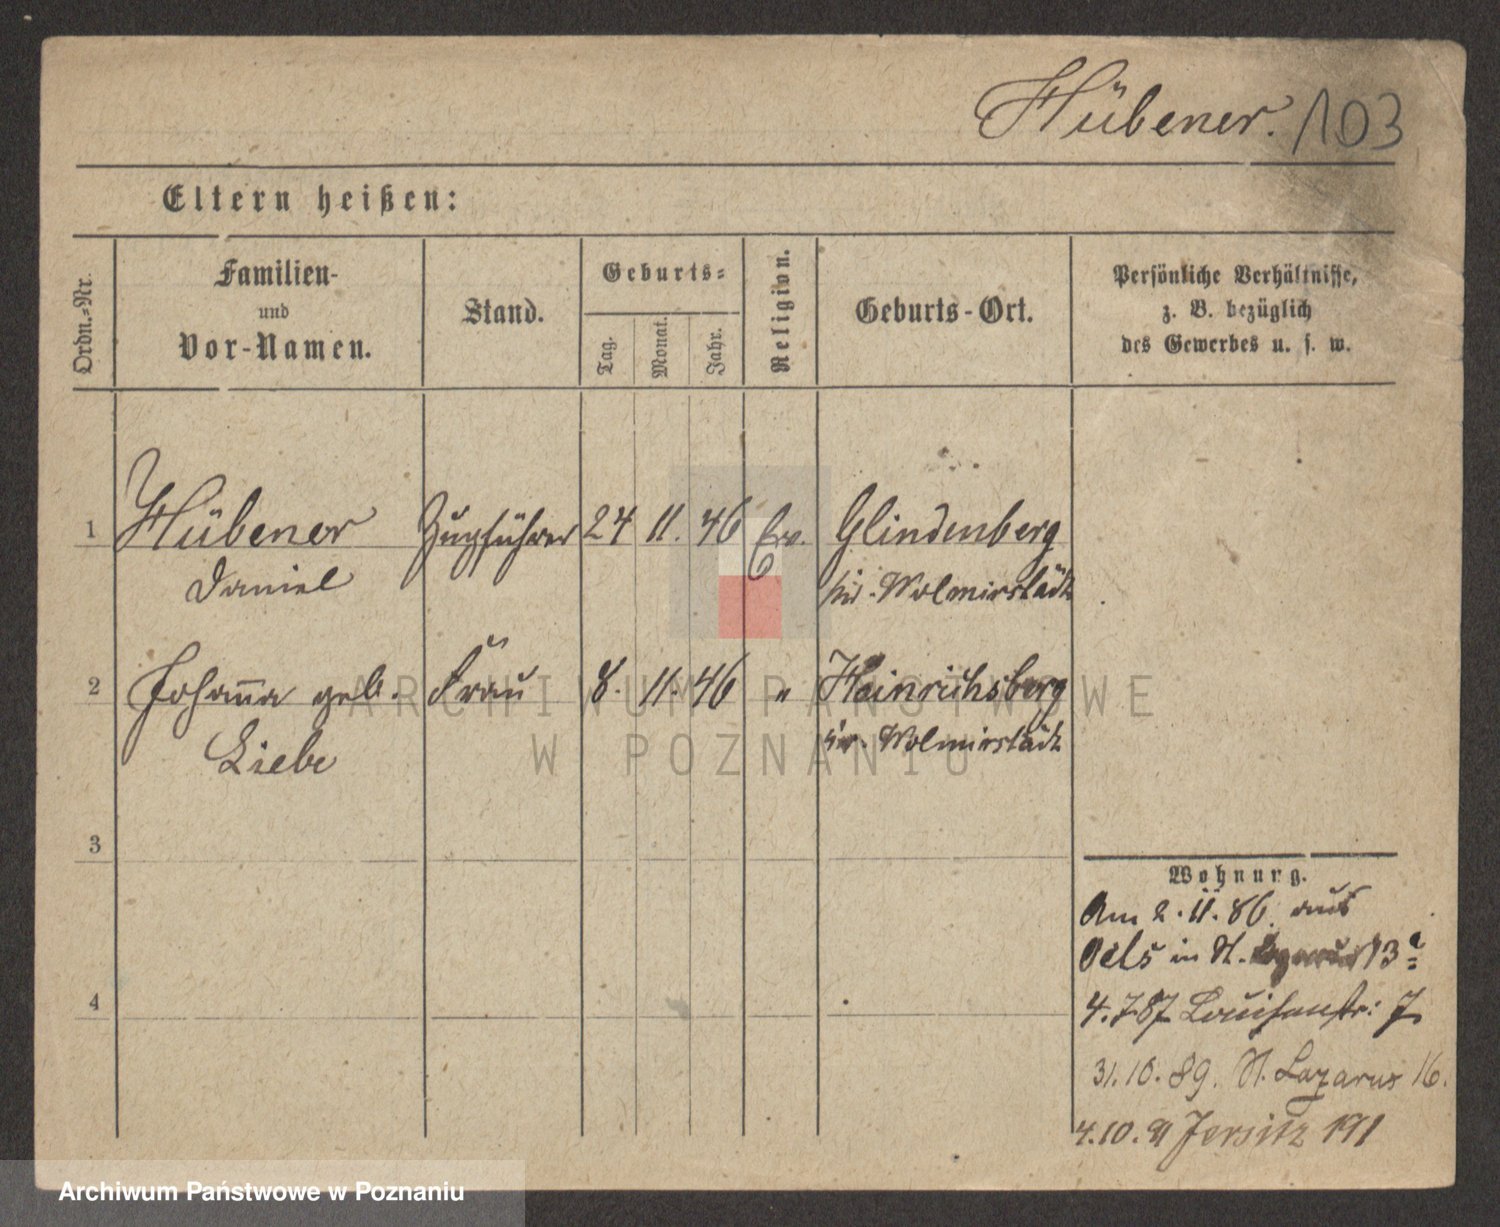 Hübener. 103
Eltern heißen:
Ordn.-Nr.
Familien-
und
Vor-Namen.
Stand.
Geburts-
Tag.
Monat.
Jahr.
Religion.
Geburts-Ort.
Persönliche Verhältnisse,
z. B. bezüglich
des Gewerbes u. s. w.
1 Hübener Zugführer 24 11. 46 Ev. Glindenberg
Daniel Wolmirstädt
2 Johanna geb. Frau 8. 11. 46 " Heinrichsberg
Liebe Wolmirstädt
3
4
Wohnung.
Am 2.11.86. aus
Oels in St. 13a
4.7.87 Louisenstr: 7.
31.10.89. St. Lazarus 16.
4.10.91 Jersitz 191
ARCHIWUM PAŃSTWOWE
W POZNANIU
Archiwum Państwowe w Poznaniu